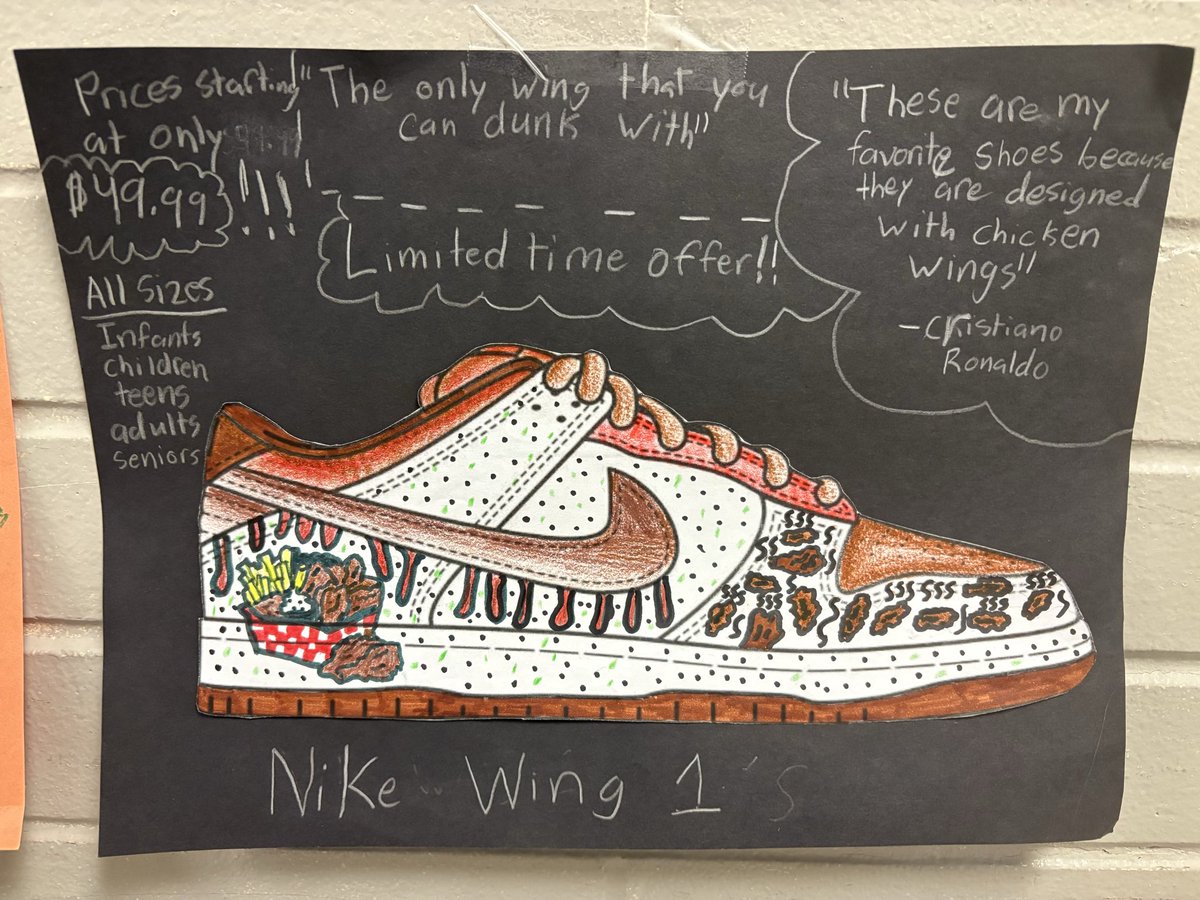 Prices starting
at only
$49.99!!!
All Sizes
Infants
children
teens
adults
seniors
"The only wing that you
can dunk with"
Limited time offer!!
"These are my
favorite shoes because
they are designed
with chicken
wings"
-Cristiano
Ronaldo
Nike Wing 1's